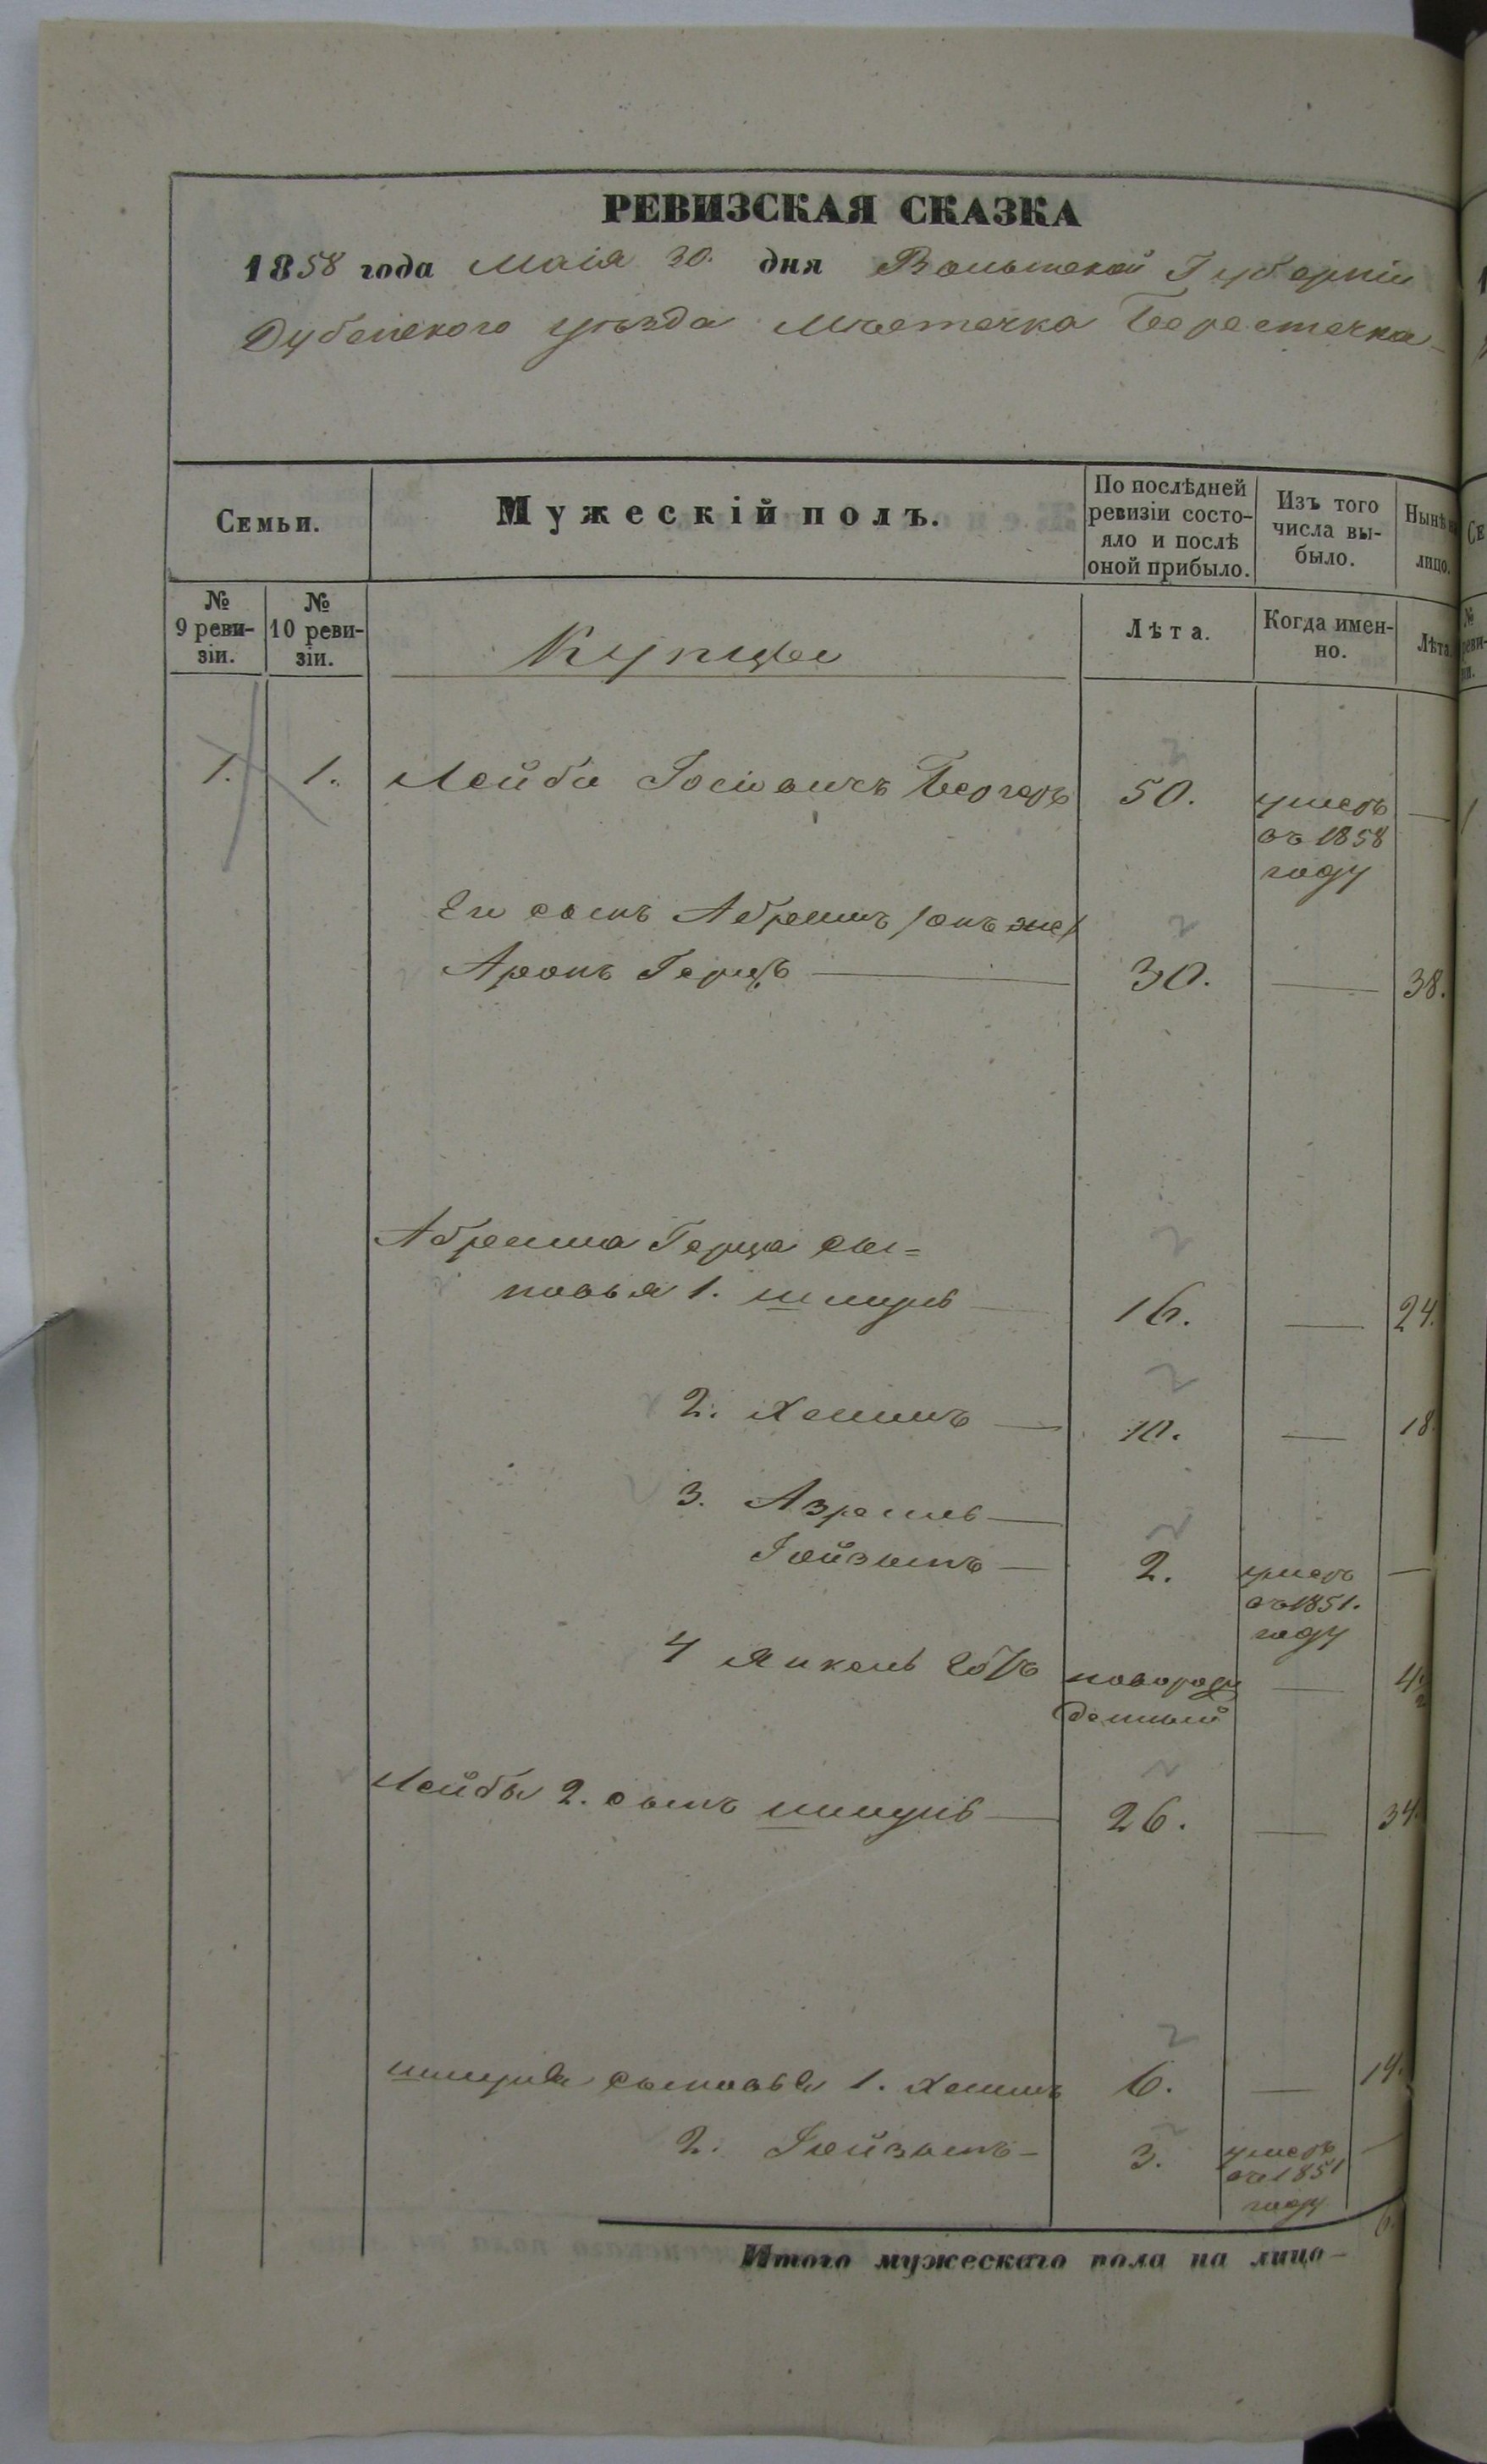 РЕВИЗСКАЯ СКАЗКА
1858 года Маія 30. дня Волынской Губерніи
Дубенскаго уѣзда Мѣстечка Берестечка
Семьи.
Мужескій полъ.
По послѣдней
ревизіи состо-
яло и послѣ
оной прибыло.
Изъ того
числа вы-
было.
Нынѣ
лицо.
№
9 реви-
зіи.
№
10 реви-
зіи.
Купцы
Лѣта.
Когда имен-
но.
Лѣта
1. 1. Лейба Іосіовичъ Бергеръ 50. умеръ —
въ 1858
году
Его сынъ Абрамъ /онъ же/
Аронъ Герцъ — 30. — 38.
Абрама Герца сы=
новья 1. Шмуль 16. — 24.
2. Хаимъ — 10. — 18
3. Азраиль —
Іойзыпъ — 2. умеръ —
въ 1851.
году
4 Янкель новорож
денный —
Лейбы 2. сынъ Шмуль — 26. — 34
Шмуля сыновья 1. Хаимъ 6. — 14.
2. Іойзыпъ — 3. умеръ —
въ 1851
году
6.
Итого мужескаго пола на лицо —